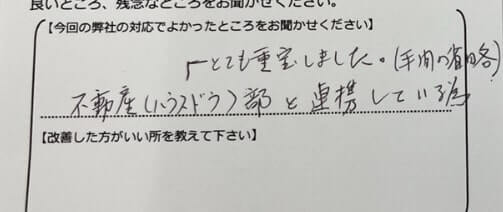 良いところ、残念なところをお聞かせください。
【今回の弊社の対応でよかったところをお聞かせください】
とても重宝しました。(手間の省略)
不動産(ハウスドゥ)部と連携している為
【改善した方がいい所を教えて下さい】